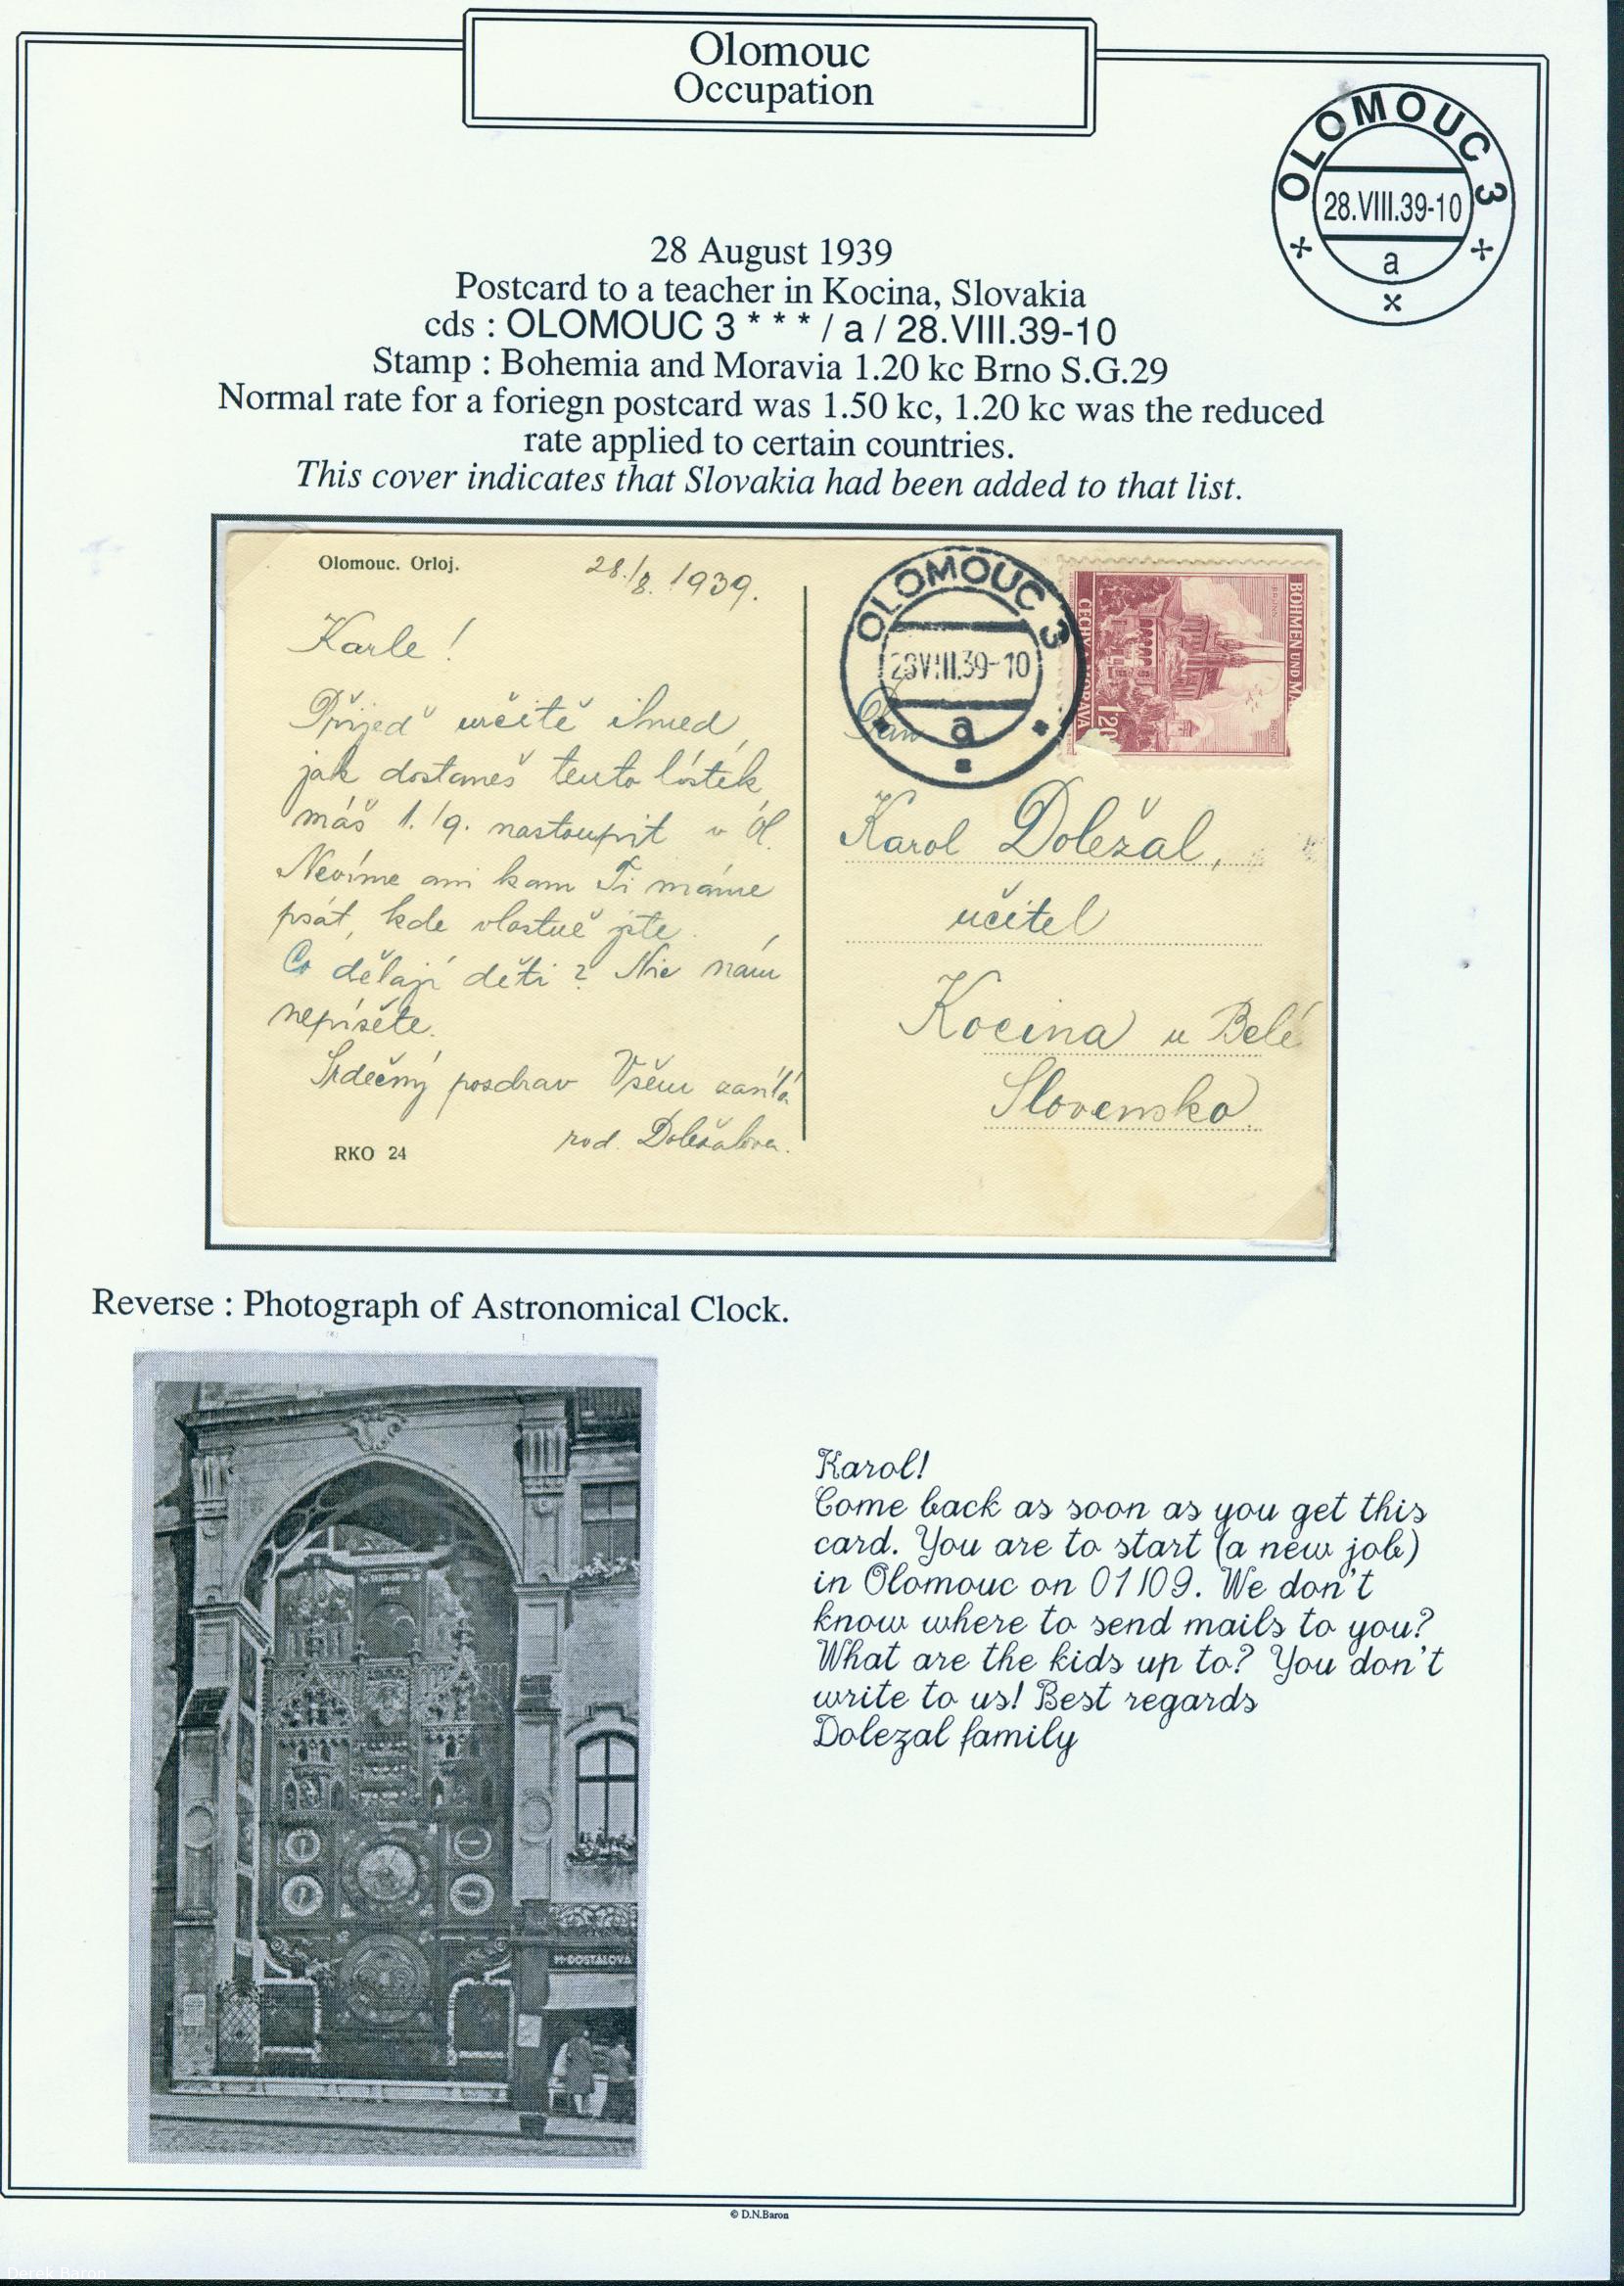 Olomouc
Occupation
OLOMOUC 3
28.VIII.39-10
a
28 August 1939
Postcard to a teacher in Kocina, Slovakia
cds : OLOMOUC 3 * * * / a / 28.VIII.39-10
Stamp : Bohemia and Moravia 1.20 kc Brno S.G.29
Normal rate for a foriegn postcard was 1.50 kc, 1.20 kc was the reduced
rate applied to certain countries.
This cover indicates that Slovakia had been added to that list.
Olomouc. Orloj.
28./8. 1939.
Karle!
Přijeď určitě ihned,
jak dostaneš tento lístek
máš 1./9. nastoupit v Ol.
Nevíme ani kam Ti máme
psát, kde vlastně jste.
Co dělají děti? Nic nám
nepíšete.
Srdečný pozdrav Všem
rod. Doležalova.
RKO 24
OLOMOUC 3
28VIII.39-10
a
BÖHMEN UND M
BRÜNN
ČECHY
MORAVA
1·20
Pan
Karol Doležal,
učitel
Kocina u Belé
Slovensko
Reverse : Photograph of Astronomical Clock.
DOSTÁLOVÁ
Karol!
Come back as soon as you get this
card. You are to start (a new job)
in Olomouc on 01/09. We don't
know where to send mails to you?
What are the kids up to? You don't
write to us! Best regards
Dolezal family
© D.N.Baron
Derek Baron